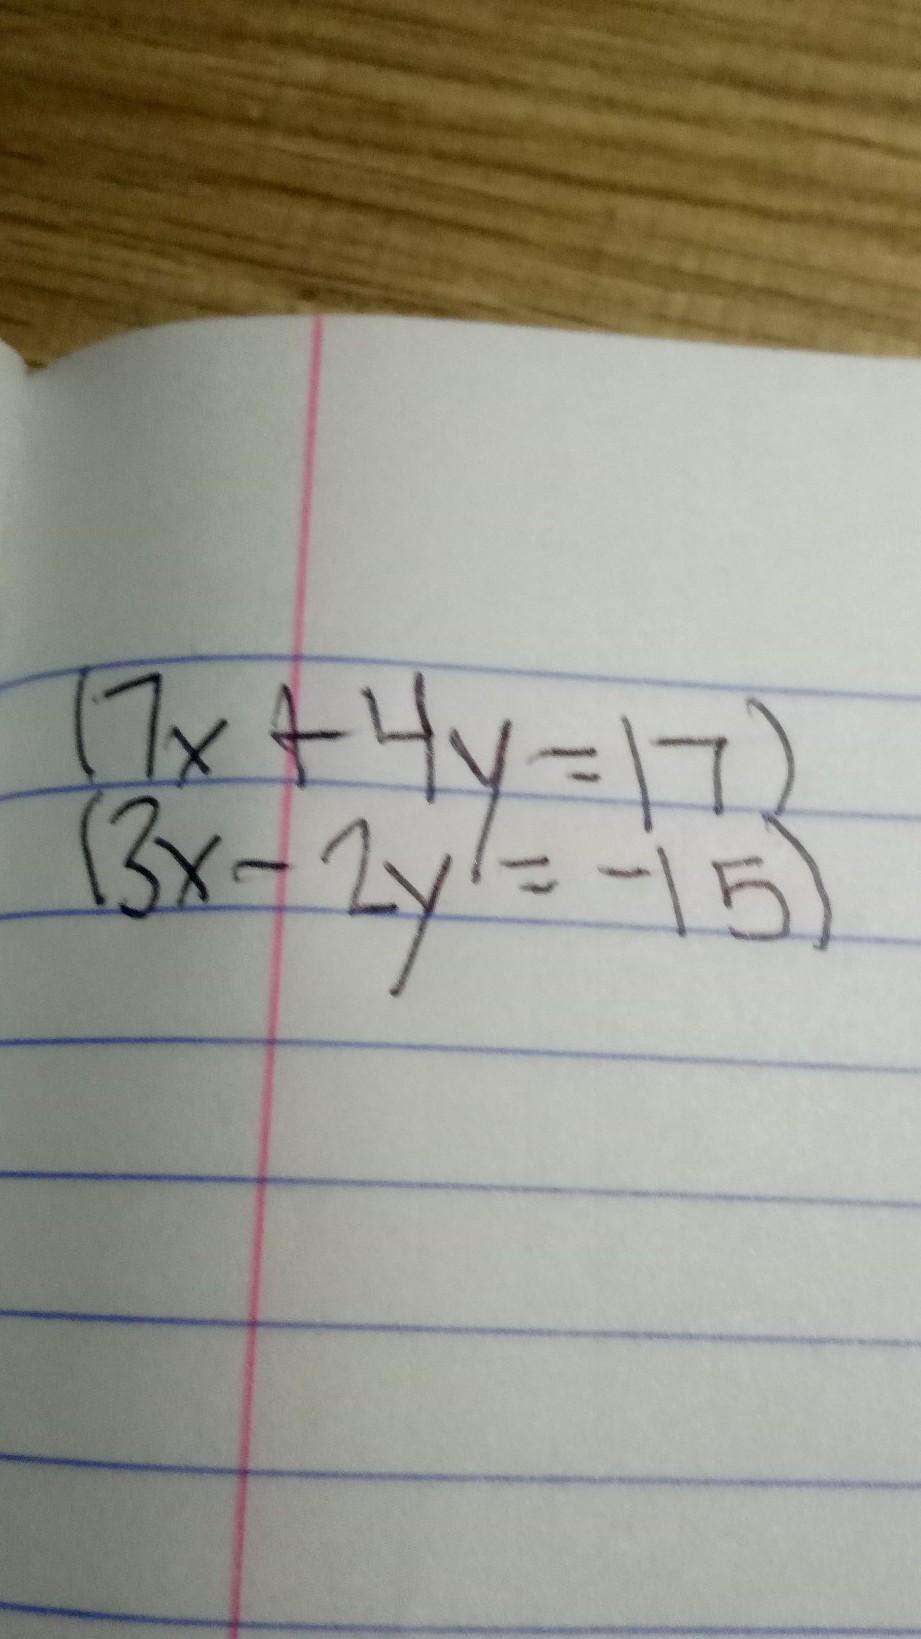 (7x + 4y = 17)
(3x - 2y = -15)